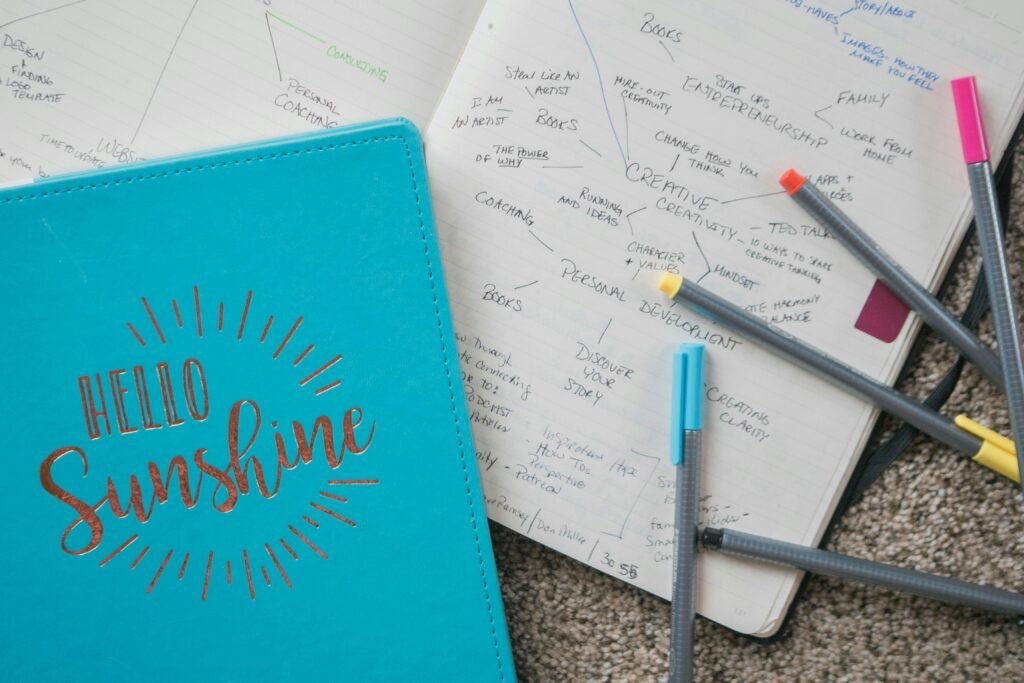 DESIGN
+
FINDING
LOGO
TEMPLATE
CONSULTING
PERSONAL
COACHING
TIME TO UPDATE
WEBSITE
HELLO
Sunshine
STORY/ABOUT
IMAGES - HOW THEY
MAKE YOU FEEL
BOOKS
START UPS
ENTREPRENEURSHIP
FAMILY
WORK FROM
HOME
STEAL LIKE AN
ARTIST
I AM
AN ARTIST
BOOKS
HIRE-OUT
CREATIVITY
THE POWER
OF WHY
CHANGE HOW YOU
THINK
CREATIVE
CREATIVITY
APPS +
TED TALK
10 WAYS TO SPARK
CREATIVE THINKING
RUNNING
AND IDEAS
COACHING
CHARACTER
+ VALUES
MINDSET
HARMONY
BALANCE
PERSONAL DEVELOPMENT
BOOKS
DISCOVER
YOUR
STORY
CREATING
CLARITY
Through
Connecting
TO:
PODCAST
Articles
Inspiration
How Tos
Perspective
Patreon
Ramsey/Dan Miller
30 55